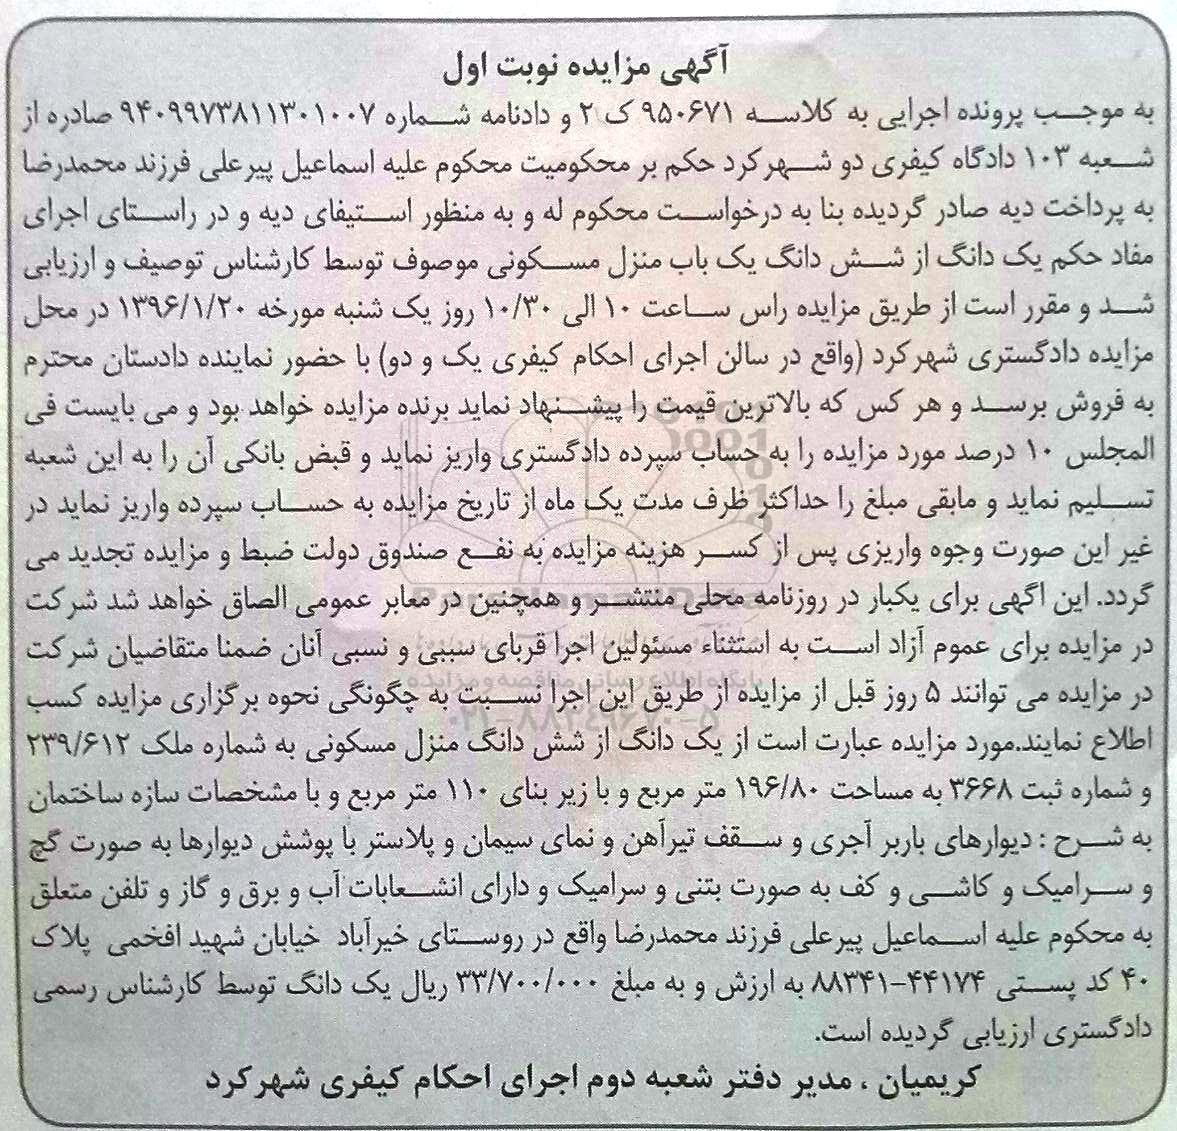 آگهی مزایده نوبت اول
به موجب پرونده اجرایی به کلاسه ۹۵۰۶۷۱ ک ۲ و دادنامه شماره ۹۴۰۹۹۷۳۸۱۱۳۰۱۰۰۷ صادره از
شعبه ۱۰۳ دادگاه کیفری دو شهرکرد حکم بر محکومیت محکوم علیه اسماعیل پیرعلی فرزند محمدرضا
به پرداخت دیه صادر گردیده بنا به درخواست محکوم له و به منظور استیفای دیه و در راستای اجرای
مفاد حکم یک دانگ از شش دانگ یک باب منزل مسکونی موصوف توسط کارشناس توصیف و ارزیابی
شد و مقرر است از طریق مزایده راس ساعت ۱۰ الی ۱۰/۳۰ روز یک شنبه مورخه ۱۳۹۶/۱/۲۰ در محل
مزایده دادگستری شهرکرد (واقع در سالن اجرای احکام کیفری یک و دو) با حضور نماینده دادستان محترم
به فروش برسد و هر کس که بالاترین قیمت را پیشنهاد نماید برنده مزایده خواهد بود و می بایست فی
المجلس ۱۰ درصد مورد مزایده را به حساب سپرده دادگستری واریز نماید و قبض بانکی آن را به این شعبه
تسلیم نماید و مابقی مبلغ را حداکثر ظرف مدت یک ماه از تاریخ مزایده به حساب سپرده واریز نماید در
غیر این صورت وجوه واریزی پس از کسر هزینه مزایده به نفع صندوق دولت ضبط و مزایده تجدید می
گردد. این اگهی برای یکبار در روزنامه محلی منتشر و همچنین در معابر عمومی الصاق خواهد شد شرکت
در مزایده برای عموم آزاد است به استثناء مسئولین اجرا قربای سببی و نسبی آنان ضمنا متقاضیان شرکت
در مزایده می توانند ۵ روز قبل از مزایده از طریق این اجرا نسبت به چگونگی نحوه برگزاری مزایده کسب
اطلاع نمایند.مورد مزایده عبارت است از یک دانگ از شش دانگ منزل مسکونی به شماره ملک ۲۳۹/۶۱۲
و شماره ثبت ۳۶۶۸ به مساحت ۱۹۶/۸۰ متر مربع و با زیر بنای ۱۱۰ متر مربع و با مشخصات سازه ساختمان
به شرح : دیوارهای باربر آجری و سقف تیرآهن و نمای سیمان و پلاستر با پوشش دیوارها به صورت گچ
و سرامیک و کاشی و کف به صورت بتنی و سرامیک و دارای انشعابات آب و برق و گاز و تلفن متعلق
به محکوم علیه اسماعیل پیرعلی فرزند محمدرضا واقع در روستای خیرآباد خیابان شهید افخمی پلاک
۴۰ کد پستی ۴۴۱۷۴-۸۸۳۴۱ به ارزش و به مبلغ ۳۳/۷۰۰/۰۰۰ ریال یک دانگ توسط کارشناس رسمی
دادگستری ارزیابی گردیده است.
کریمیان ، مدیر دفتر شعبه دوم اجرای احکام کیفری شهرکرد
پایگاه اطلاع رسانی مناقصه و مزایده
۰۲۱-۸۸۳۴۹۶۷۰-۵